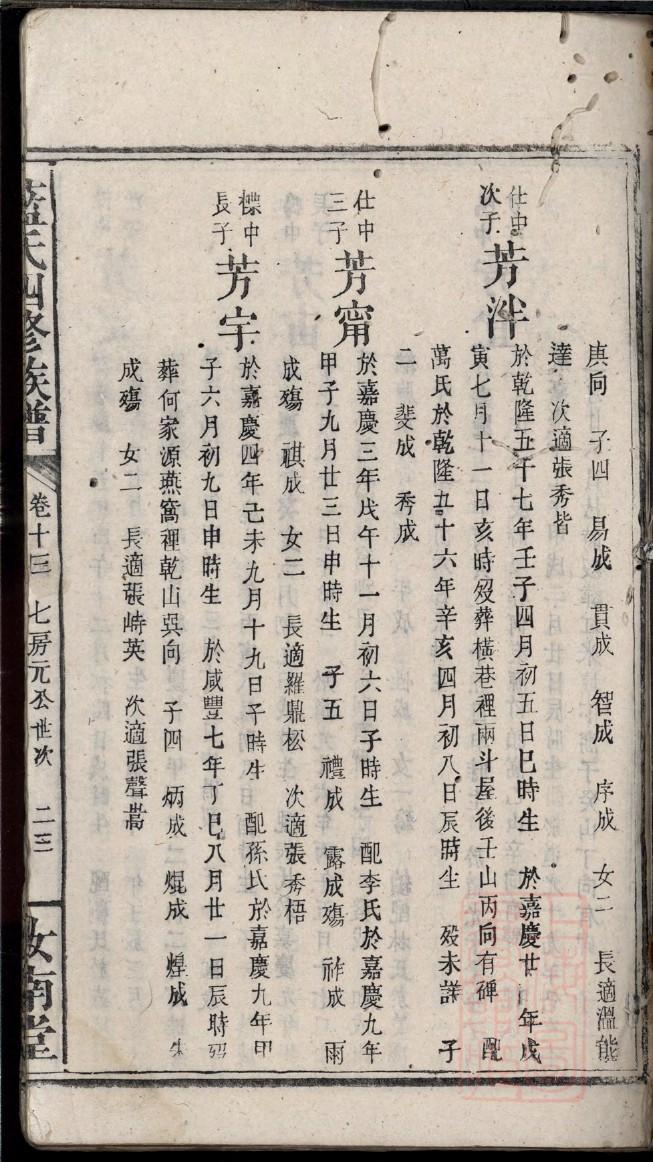 庚向 子四 易成 貫成 智成 序成 女二 長適溫能
達 次適張秀皆
仕中次子 芳泮 於乾隆五十七年壬子四月初五日巳時生 於嘉慶廿 年戊
寅七月十一日亥時歿葬橫巷裡兩斗屋後壬山丙向有碑 配
萬氏於乾隆五十六年辛亥四月初八日辰時生 歿未詳 子
二 斐成 秀成
仕中三子 芳甯 於嘉慶三年戊午十一月初六日子時生 配李氏於嘉慶九年
甲子九月廿三日申時生 子五 禮成 露成殤 祚成 雨
成殤 祺成 女二 長適羅鼎松 次適張秀梧
標中長子 芳宇 於嘉慶四年己未九月十九日午時生 配孫氏於嘉慶九年甲
子六月初九日申時生 於咸豐七年丁巳八月廿一日辰時歿
葬何家源燕窩裡乾山巽向 子四 炳成 焜成 煌成
成殤 女二 長適張崎英 次適張聲嵩
藍氏四修族譜 卷十三 七房元公世次 二三 汝南堂